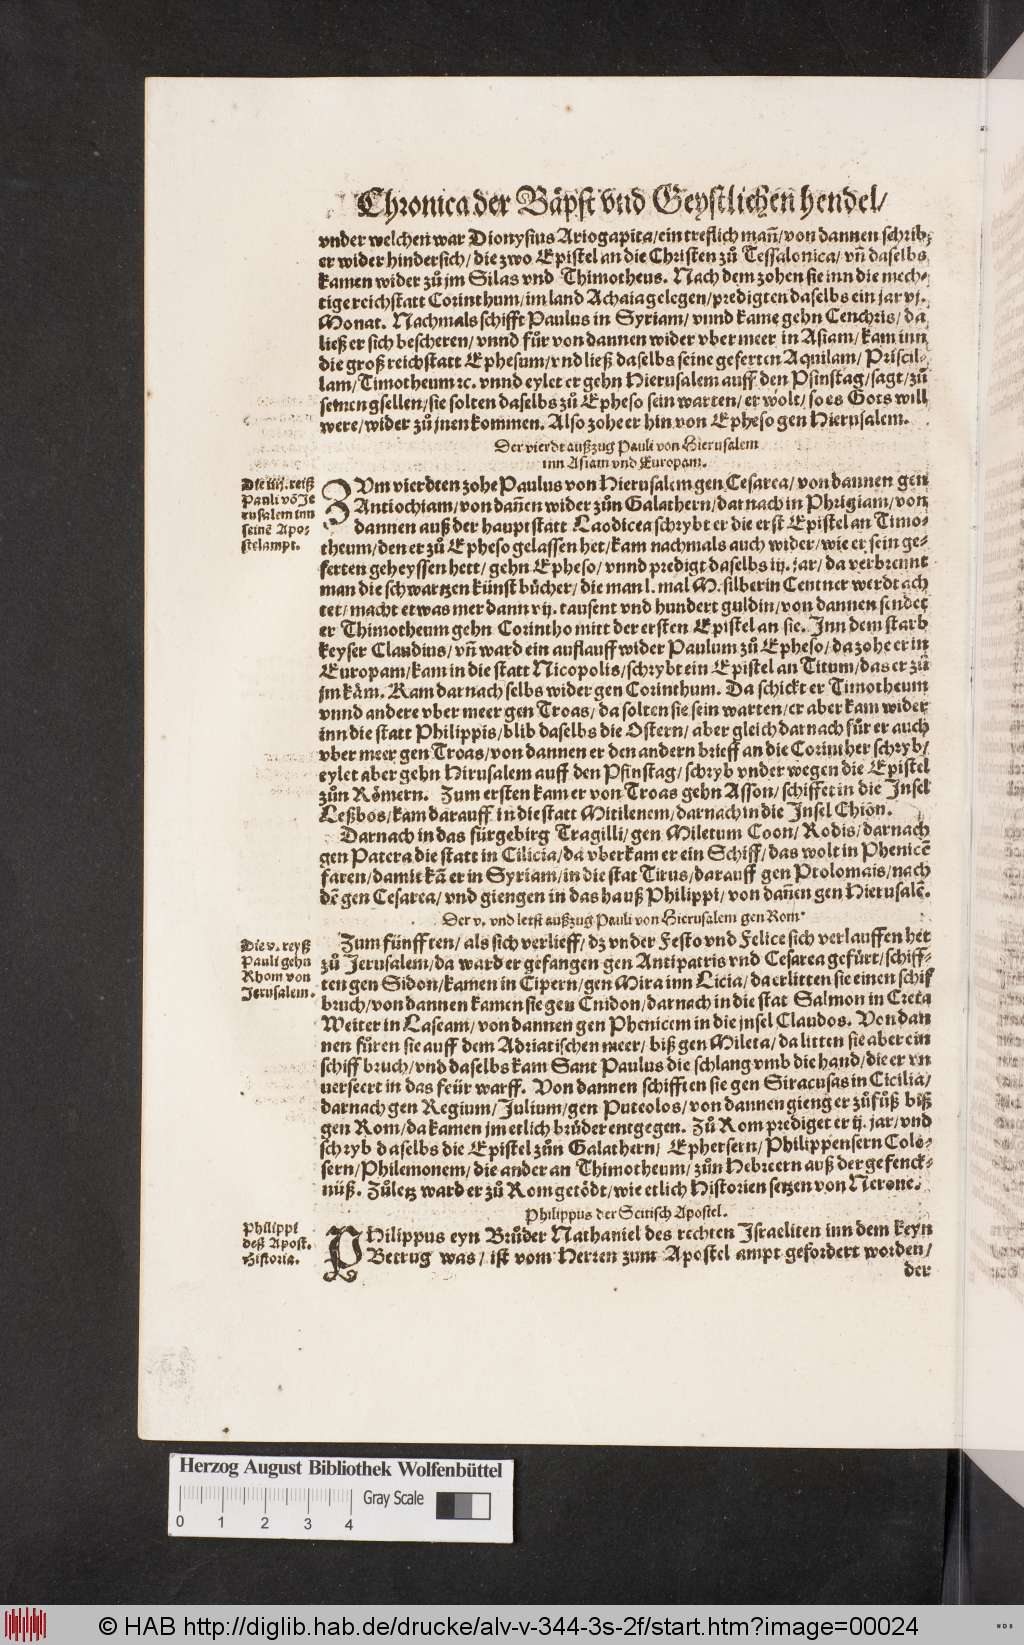 Chronica der Bäpst vnd Geystlichen hendel/
vnder welchen war Dionysius Ariogapita/ein treflich mañ/von dannen schrib
er wider hindersich/die zwo Epistel an die Christen zů Tessalonica/vñ daselbs
kamen wider zů jm Silas vnd Thimotheus. Nach dem zohen sie inn die mech-
tige reichstatt Corinthum/im land Achaia gelegen/predigten daselbs ein jar vj.
Monat. Nachmals schifft Paulus in Syriam/vnnd kame gehn Cenchris/da
ließ er sich bescheren/vnnd fůr von dannen wider vber meer in Asiam/kam inn
die groß reichstatt Ephesum/vnd ließ daselbs seine geferten Aquilam/Priscil-
lam/Timotheum ꝛc. vnnd eylet er gehn Hierusalem auff den Pfinstag/sagt/zů
seinen gsellen/sie solten daselbs zů Epheso sein warten/er wolt/so es Gots will
were/wider zů jnen kommen. Also zohe er hin von Epheso gen Hierusalem.
Der vierdt außzug Pauli von Hierusalem
inn Asiam vnd Europam.
Die iiij. reiß
Pauli võ Je
rusalem inn
seinẽ Apo-
stelampt.
ZVm vierdten zohe Paulus von Hierusalem gen Cesarea/von dannen gen
Antiochiam/von dañen wider zůn Galathern/darnach in Phrigiam/von
dannen auß der hauptstatt Laodicea schrybt er die erst Epistel an Timo-
theum/den er zů Epheso gelassen het/kam nachmals auch wider/wie er sein ge-
ferten geheyssen hett/gehn Epheso/vnnd predigt daselbs iij. jar/da verbrennt
man die schwartzen künst bücher/die man l. mal M. silberin Centner werdt ach
tet/macht etwas mer dann vij. tausent vnd hundert guldin/von dannen sendet
er Thimotheum gehn Corintho mitt der ersten Epistel an sie. Inn dem starb
keyser Claudius/vñ ward ein aufflauff wider Paulum zů Epheso/da zohe er in
Europam/kam in die statt Nicopolis/schrybt ein Epistel an Titum/das er zů
jm käm. Kam darnach selbs wider gen Corinthum. Da schickt er Timotheum
vnnd andere vber meer gen Troas/da solten sie sein warten/er aber kam wider
inn die statt Philippis/blib daselbs die Ostern/aber gleich darnach fůr er auch
vber meer gen Troas/von dannen er den andern brieff an die Corinther schryb/
eylet aber gehn Hirusalem auff den Pfinstag/schryb vnder wegen die Epistel
zůn Römern. Zum ersten kam er von Troas gehn Asson/schiffet in die Insel
Leßbos/kam darauff in die statt Mitilenem/darnach in die Insel Chion.
Darnach in das fürgebirg Tragilli/gen Miletum Coon/Rodis/darnach
gen Patera die statt in Cilicia/da vberkam er ein Schiff/das wolt in Phenicẽ
faren/damit kã er in Syriam/in die stat Tirus/darauff gen Ptolomais/nach
dẽ gen Cesarea/vnd giengen in das hauß Philippi/von dañen gen Hierusalẽ.
Der v. vnd letst außzug Pauli von Hierusalem gen Rom.
Die v. reyß
Pauli gehn
Rhom von
Jerusalem.
Zum fünfften/als sich verlieff/dz vnder Festo vnd Felice sich verlauffen het
zů Jerusalem/da ward er gefangen gen Antipatris vnd Cesarea gefürt/schiff-
ten gen Sidon/kamen in Cipern/gen Mira inn Licia/da erlitten sie einen schif
bruch/von dannen kamen sie gen Cnidon/darnach in die stat Salmon in Creta
Weiter in Laseam/von dannen gen Phenicem in die jnsel Claudos. Von dan
nen fůren sie auff dem Adriatischen meer/biß gen Mileta/da litten sie aber ein
schiff bruch/vnd daselbs kam Sant Paulus die schlang vmb die hand/die er vn
uerseert in das feür warff. Von dannen schifften sie gen Siracusas in Cicilia/
darnach gen Regium/Julium/gen Puteolos/von dannen gieng er zůfůß biß
gen Rom/da kamen jm etlich brůder entgegen. Zů Rom prediget er ij. jar/vnd
schryb daselbs die Epistel zůn Galathern/Ephesern/Philippensern Colo-
sern/Philemonem/die ander an Thimotheum/zůn Hebreern auß der gefenck-
nüß. Zůletz ward er zů Rom getödt/wie etlich Historien setzen von Nerone.
Philippus der Scitisch Apostel.
Philippi
deß Apost.
Historia.
PHilippus eyn Brůder Nathaniel des rechten Israeliten inn dem keyn
Betrug was/ist vom Herren zum Apostel ampt gefordert worden/
der
Herzog August Bibliothek Wolfenbüttel
Gray Scale
0 1 2 3 4
© HAB http://diglib.hab.de/drucke/alv-v-344-3s-2f/start.htm?image=00024